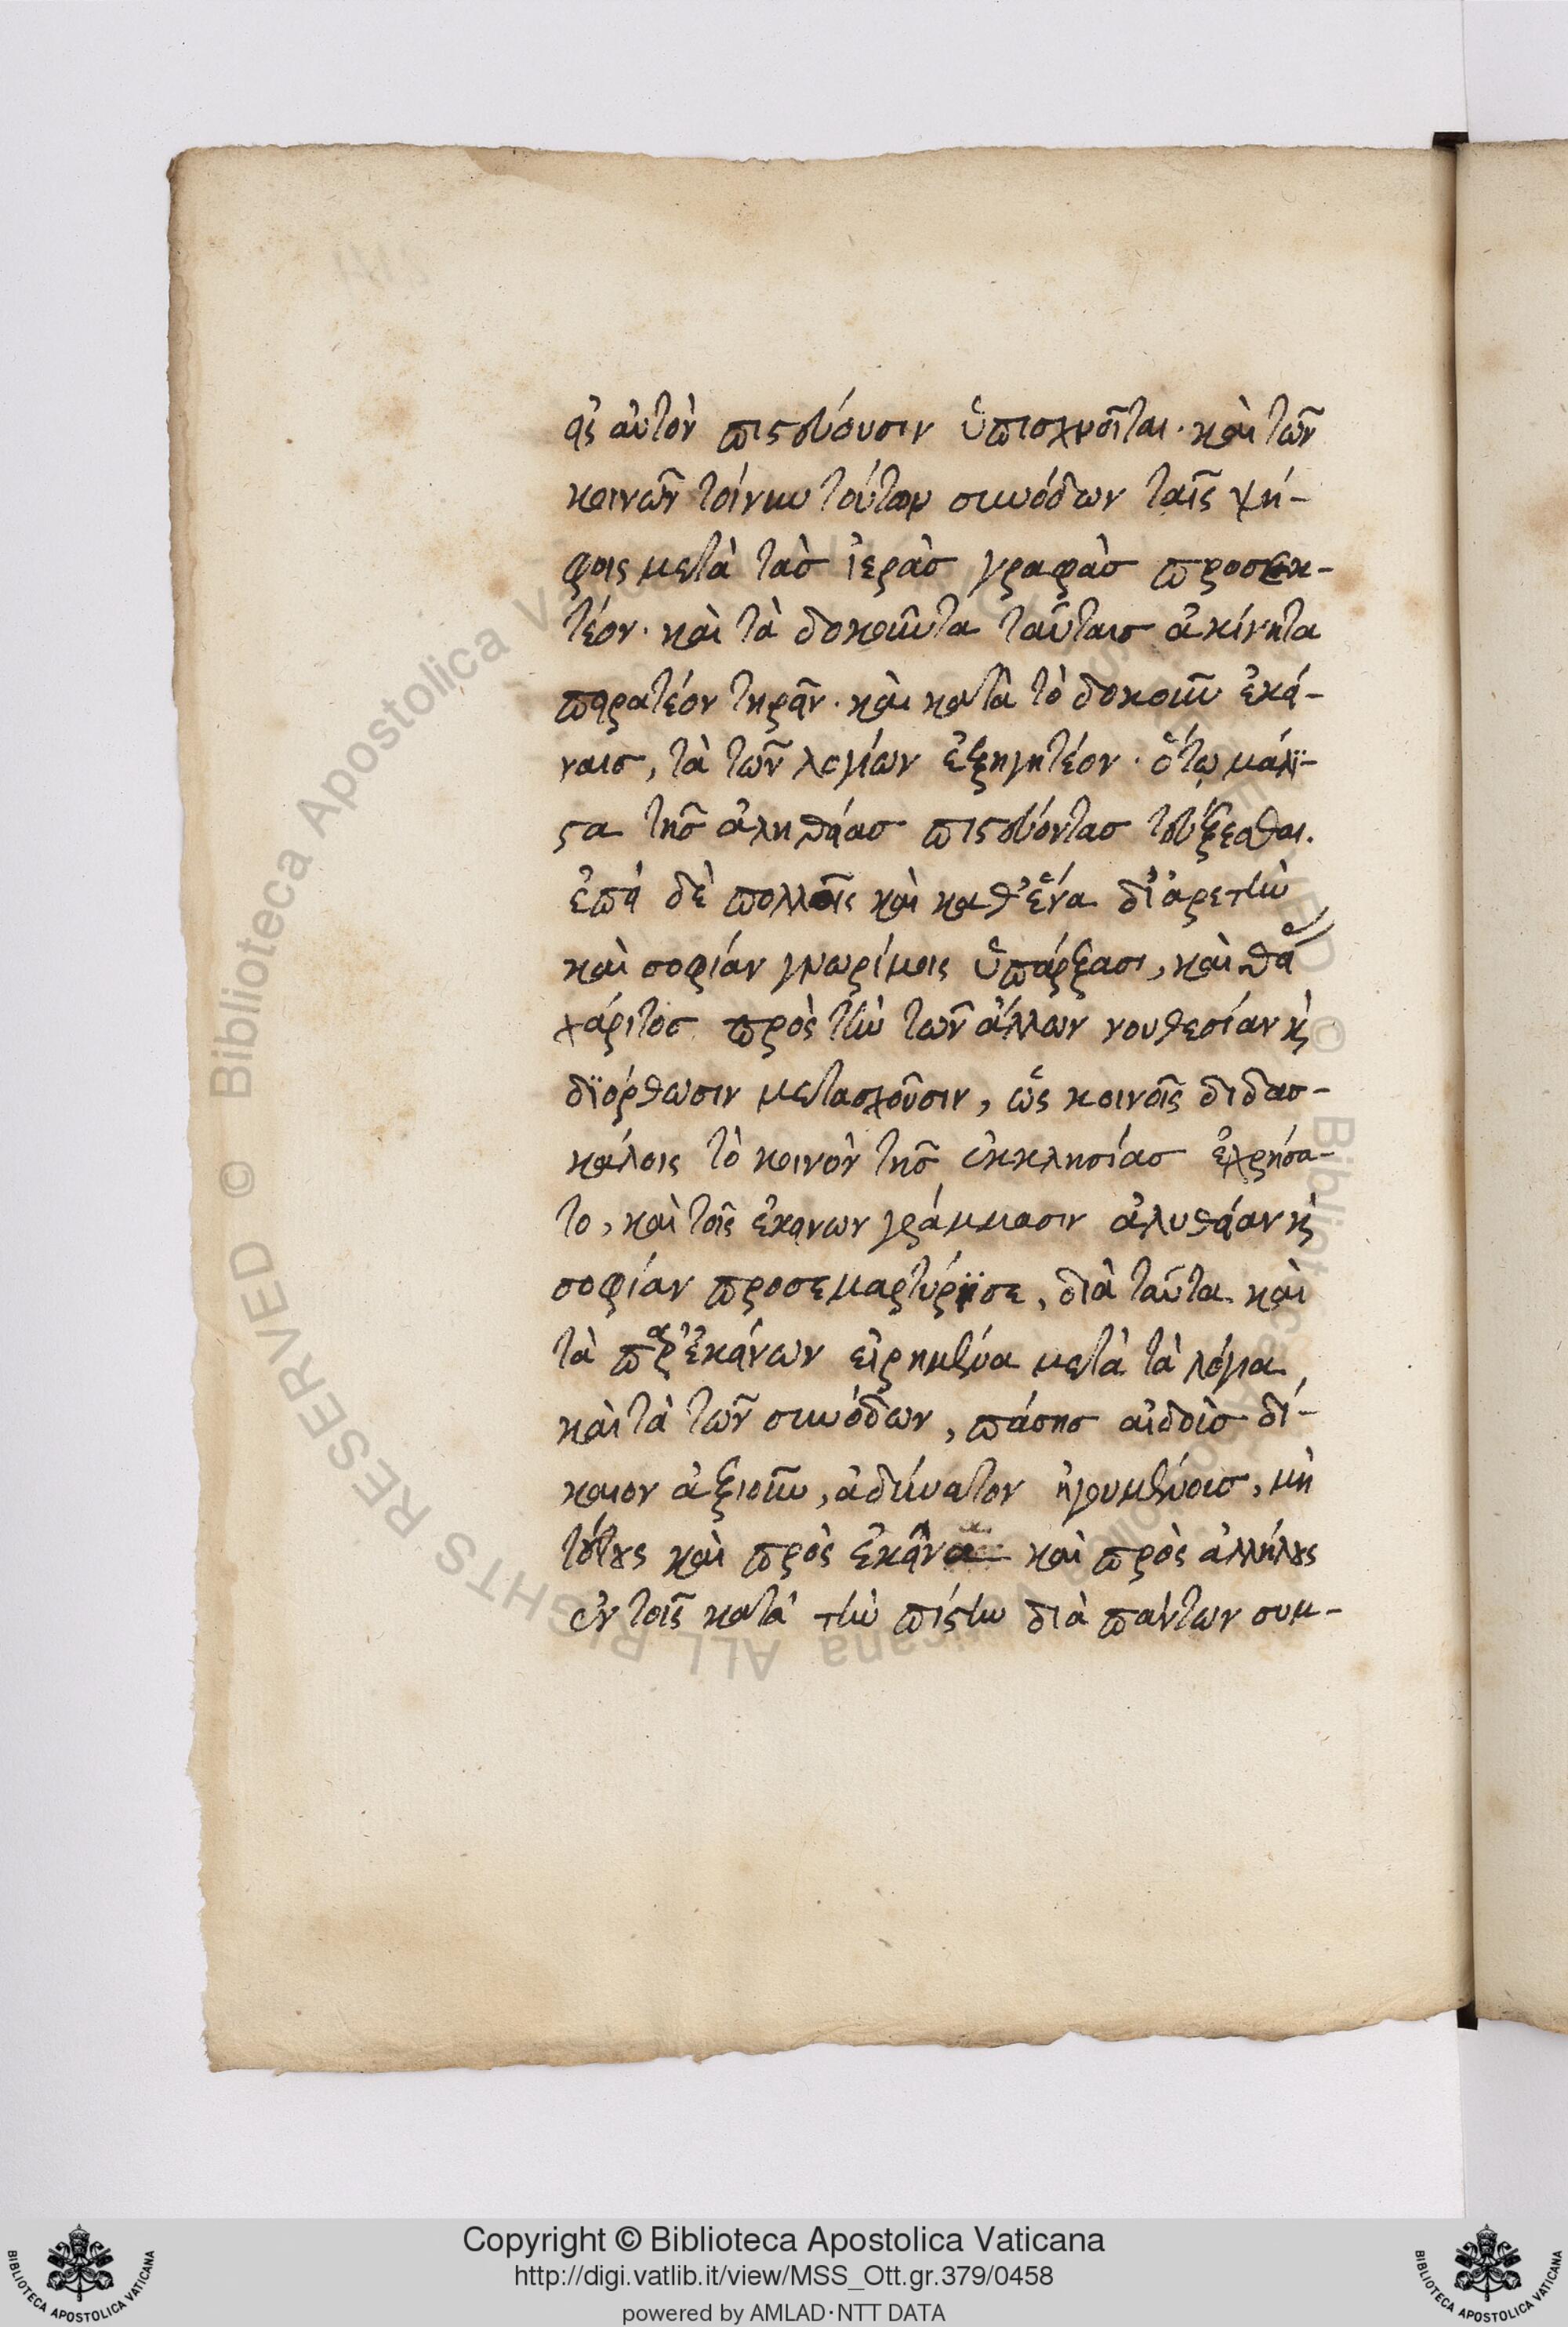 εἰς αὐτὸν πιστεύουσιν ὑπισχνεῖται· καὶ τῶν
κοινῶν τοίνυν τούτων συνόδων ταῖς ψή-
φοις μετὰ τὰς ἱερὰς γραφὰς προσεκ-
τέον· καὶ τὰ δοκοῦντα ταύταις ἀκίνητα
πειρατέον τηρεῖν· καὶ κατὰ τὸ δοκοῦν ἐκεί-
ναις, τὰ τῶν λογίων ἐξηγητέον· οὕτω μάλϊ-
στα τῆς ἀληθείας πιστεύοντας τεύξεσθαι.
ἐπεὶ δὲ πολλοῖς καὶ καθ' ἕνα δι' ἀρετὴν
καὶ σοφίαν γνωρίμοις ὑπάρξασι, καὶ θείας
χάριτος πρὸς τὴν τῶν ἄλλων νουθεσίαν κ̀
δϊόρθωσιν μετασχοῦσιν, ὡς κοινοῖς διδασ-
κάλοις τὸ κοινὸν τῆς ἐκκλησίας ἐχρήσα-
το, καὶ τοῖς ἐκείνων γράμμασιν ἀλυθείαν κ̀
σοφίαν προσεμαρτύρϊσε, διὰ ταῦτα καὶ
τὰ παρ' ἐκείνων εἰρημένα μετὰ τὰ λόγια,
καὶ τὰ τῶν συνόδων, πάσης αἰδοῖς δί-
καιον ἀξιοῦν, ἀδύνατον ἡγουμένοις, μὴ
τούτους καὶ πρὸς ἐκεῖνα καὶ πρὸς ἀλλήλους
ἐν τοῖς κατὰ τὴν πίστιν διὰ πάντων συμ-
Copyright © Biblioteca Apostolica Vaticana
http://digi.vatlib.it/view/MSS_Ott.gr.379/0458
powered by AMLAD·NTT DATA
BIBLIOTECA APOSTOLICA VATICANA
BIBLIOTECA APOSTOLICA VATICANA